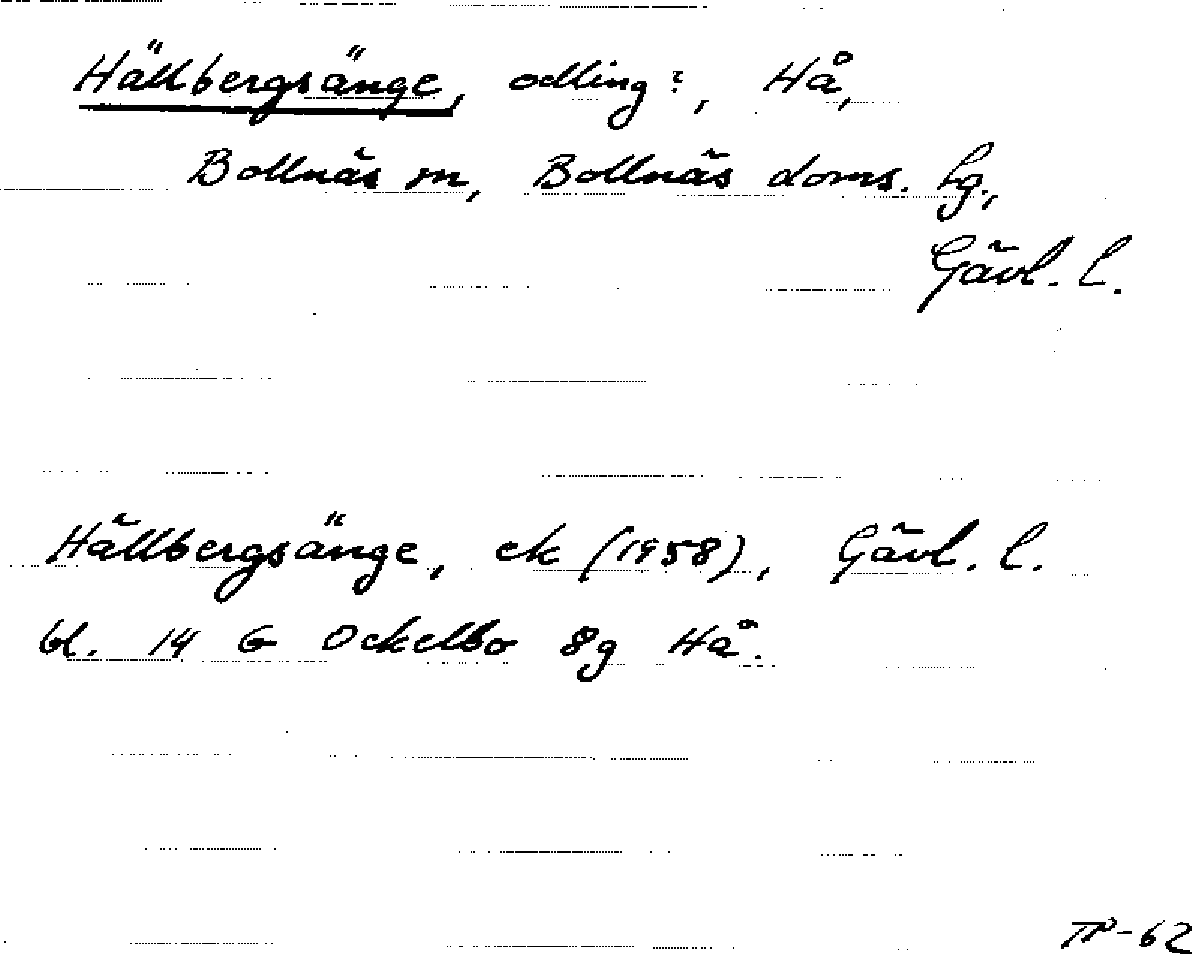 Hällbergsänge, odling?, Hå,
Bollnäs sn, Bollnäs doms. hg.,
Gävl. l.
Hällbergsänge, ek (1958), Gävl. l.
bl. 14 G Ockelbo 8g Hå.
TP-62